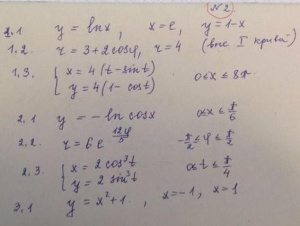 №2
1.1 y = ln x, x = e, y = 1-x
1.2. r = 3+2cosφ, r = 4 (вне I кривой)
1.3. { x = 4(t-sin t)
y = 4(1-cos t) 0≤x≤8π
2.1 y = -ln cosx 0≤x≤π/6
2.2. r = 6e^(12φ/5) -π/2≤φ≤π/2
2.3. { x = 2cos³t
y = 2sin³t 0≤t≤π/4
3.1 y = x²+1, x=-1, x=1